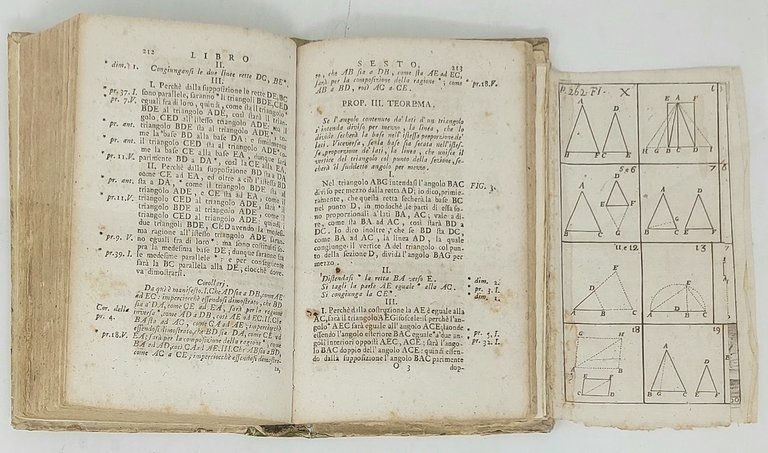 212
LIBRO
II.
* dim. 1.
Congiungansi le due linee rette DC, BE*.
III.
I. Perchè dalla supposizione le rette DE, BC
* pr. 37. I.
sono parallele, saranno* i triangoli BDE, CED
* pr. 7. V.
eguali fra di loro, quindi*, come sta il triangolo
BDE al triangolo ADE, così starà il trian-
golo CED all'istesso triangolo ADE; ma il
* pr. ant.
triangolo BDE sta al triangolo ADE*, co-
me la base BD alla base DA; e similmente
* pr. ant.
il triangolo CED sta al triangolo ADE*, co-
me la base CE alla base EA, dunque sarà
* pr. 11. V.
parimente BD a DA*, così la CE alla EA.
II. Perchè dalla supposizione BD sta a DA
come CE ad EA, ed oltre a ciò l'istesso BD
* pr. ant.
sta a DA,* come il triangolo BDE sta al
triangolo ADE, e CE sta ad EA, come il
* pr. 11. V.
triangolo CED al triangolo ADE, sarà* il
triangolo BDE al triangolo ADE, come il
triangolo CED al triangolo ADE; quindi i
due triangoli BDE, CED avendo la medesi-
ma ragione all'istesso triangolo ADE saran-
* pr. 9. V.
no eguali fra di loro*: ma sono costituiti so-
pra la medesima base DE; dunque saranno fra
* pr. 39. I.
le medesime parallele*; e per conseguente
sarà la BC parallela alla DE; ciocchè dove-
va dimostrarsi.
Corollarj.
Da quì è manifesto. I. Che AD sta a DB, come AE
ad EC; imperciocchè essendosi dimostrato, che BD
sta a DA, come CE ad EA, sarà per la ragione
* Cor. della
inversa*, come AD a DB, così AE ad EC. II. Che
pr. 4.
BA sta ad AD, come CA ad AE; imperciocchè
essendosi dimostrato, che BD sta a DA, come CE ad
* pr. 18. V.
EA; sarà per la composizione della ragione*, come
BA ad AD, così CA ad AE. III. Che AB sta a BD,
come AC a CE; imperciocchè essendosi dimostra-
to,
SESTO.
213
to, che AD sta a DB, come sta AE ad EC,
sarà per la composizione della ragione*, come
* pr. 18. V.
AB a BD, così AC a CE.
PROP. III. TEOREMA.
Se l'angolo contenuto da' lati d'un triangolo
s'intenda diviso per mezzo, la linea, che lo
divide secherà la base nell'istessa proporzione de'
lati. Viceversa, se la base sia secata nell'istes-
sa proporzione de' lati, la linea, che unisce il
vertice del triangolo col punto della sezione, se-
cherà il suddetto angolo per mezzo.
I.
Nel triangolo ABC intendasi l'angolo BAC
FIG. 3.
diviso per mezzo dalla retta AD; io dico, prime-
ramente, che questa retta secherà la base BC
nel punto D, in modochè le parti di essa so-
no proporzionali a' lati BA, AC; vale a di-
re, come sta BA ad AC, così starà BD a
DC. Io dico inoltre, che se BD sta a DC,
come BA ad AC, la linea AD, la quale
congiunge il vertice A del triangolo col pun-
to della sezione D, divida l'angolo BAC per
mezzo.
II.
Distendasi* la retta BA verso E.
* dim. 2.
Si tagli la parte AE eguale* alla AC.
* pr. 3. I.
Si congiunga la CE*.
* dim. 1.
III.
I. Perchè dalla costruzione la AE è eguale alla
AC, sarà il triangolo AEC isoscele: il perchè l'an-
golo* AEC sarà eguale all'angolo ACE; laonde
* pr. 5. I.
essendo l'angolo esteriore BAC eguale* a' due an-
* pr. 32. I.
goli interiori opposti AEC, ACE; sarà l'ango-
lo BAC doppio dell'angolo ACE: quindi essen-
do dalla supposizione l'angolo BAC parimente
O 3
dop-
P. 262 Fl. X
A D
B F C E
E A F
H G B D C I
5 e 6
7
11 e 12
13
18
19